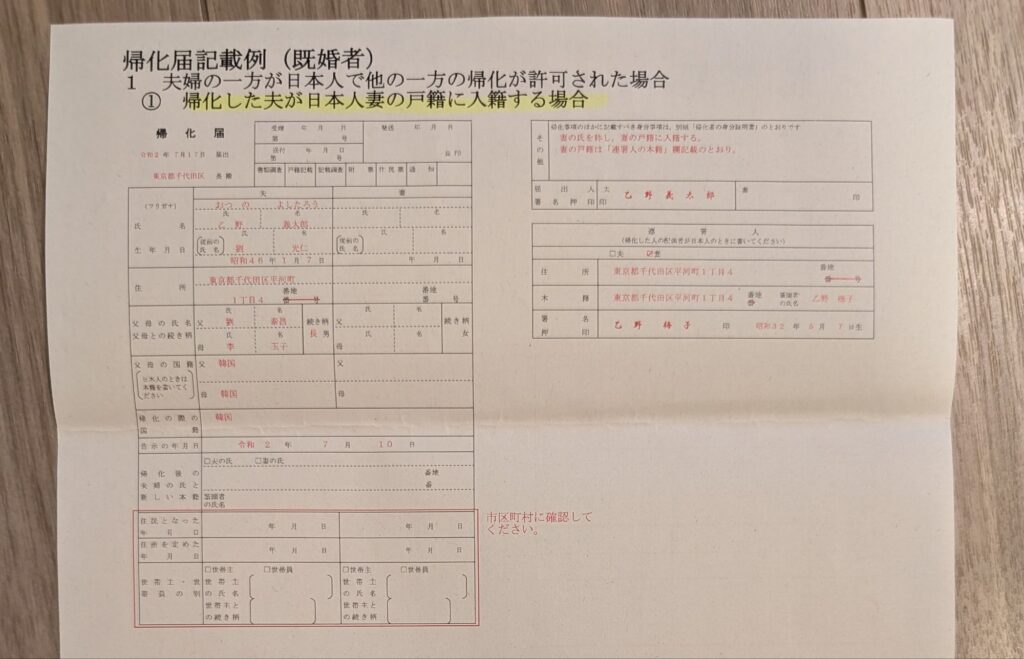 帰化届記載例（既婚者）
1 夫婦の一方が日本人で他の一方の帰化が許可された場合
① 帰化した夫が日本人妻の戸籍に入籍する場合
帰化届
令和2年7月17日 届出
東京都千代田区 長殿
受理 年 月 日
第 号
発送 年 月 日
送付 年 月 日
第 号
長印
書類調査 戸籍記載 記載調査 附票 住民票 通知
夫 妻
(フリガナ) おつの よしたろう
氏 名 氏 名
氏名 乙野 義太郎
氏 名 氏 名
(従前の氏名) 劉 光仁 (従前の氏名)
生年月日 昭和46年1月7日 年 月 日
住所 東京都千代田区平河町
1丁目4 番地 番 号 番地 番 号
氏 名 氏 名
父母の氏名 父 劉 秦昌 続き柄 父 続き柄
父母との続き柄 氏 名 長男 氏 名 女
母 李 玉子 母
父母の国籍 父 韓国 父
(日本人のときは本籍を書いてください)
母 韓国 母
帰化の際の国籍 韓国
告示の年月日 令和2年7月10日
□夫の氏 □妻の氏
帰化後の夫婦の氏と新しい本籍
番地
番
筆頭者の氏名
住民となった年月日 年 月 日 年 月 日
住所を定めた年月日 年 月 日 年 月 日
世帯主・世帯員の別 □世帯主 □世帯員 □世帯主 □世帯員
世帯主の氏名 世帯主の氏名
世帯主との続き柄 世帯主との続き柄
市区町村に確認して
ください。
その他
帰化事項のほかに記載すべき身分事項は、別紙「帰化者の身分証明書」のとおりです
妻の氏を称し、妻の戸籍に入籍する。
妻の戸籍は「連署人の本籍」欄記載のとおり。
届出人署名押印 夫 乙野義太郎 印 妻 印
連署人
(帰化した人の配偶者が日本人のときに書いてください)
□夫 ☑妻
住所 東京都千代田区平河町1丁目4 番地 番 号
本籍 東京都千代田区平河町1丁目4 番地 番 筆頭者の氏名 乙野 梅子
署名押印 乙野 梅子 印 昭和32年5月7日生